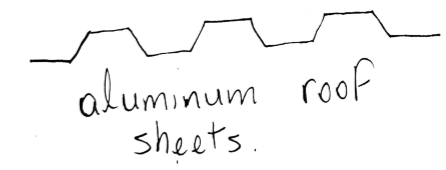 aluminum roof
sheets.